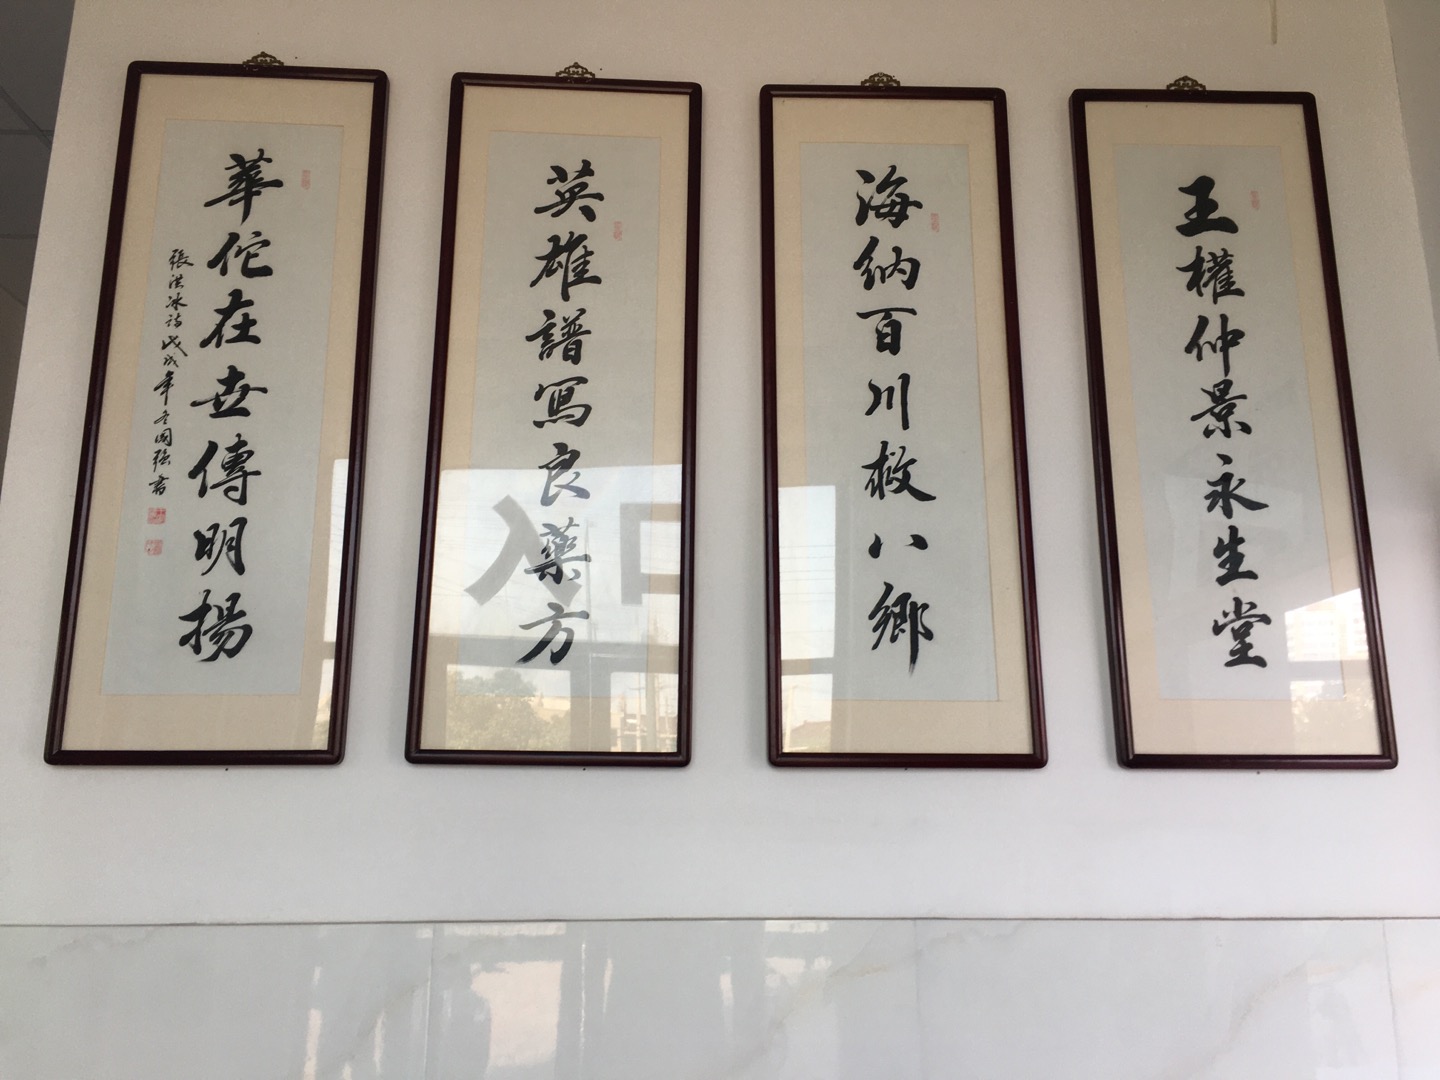 王權仲景永生堂
海納百川救八鄉
英雄譜寫良藥方
華佗在世傳明揚
張洪冰詩戊戌年冬國強書